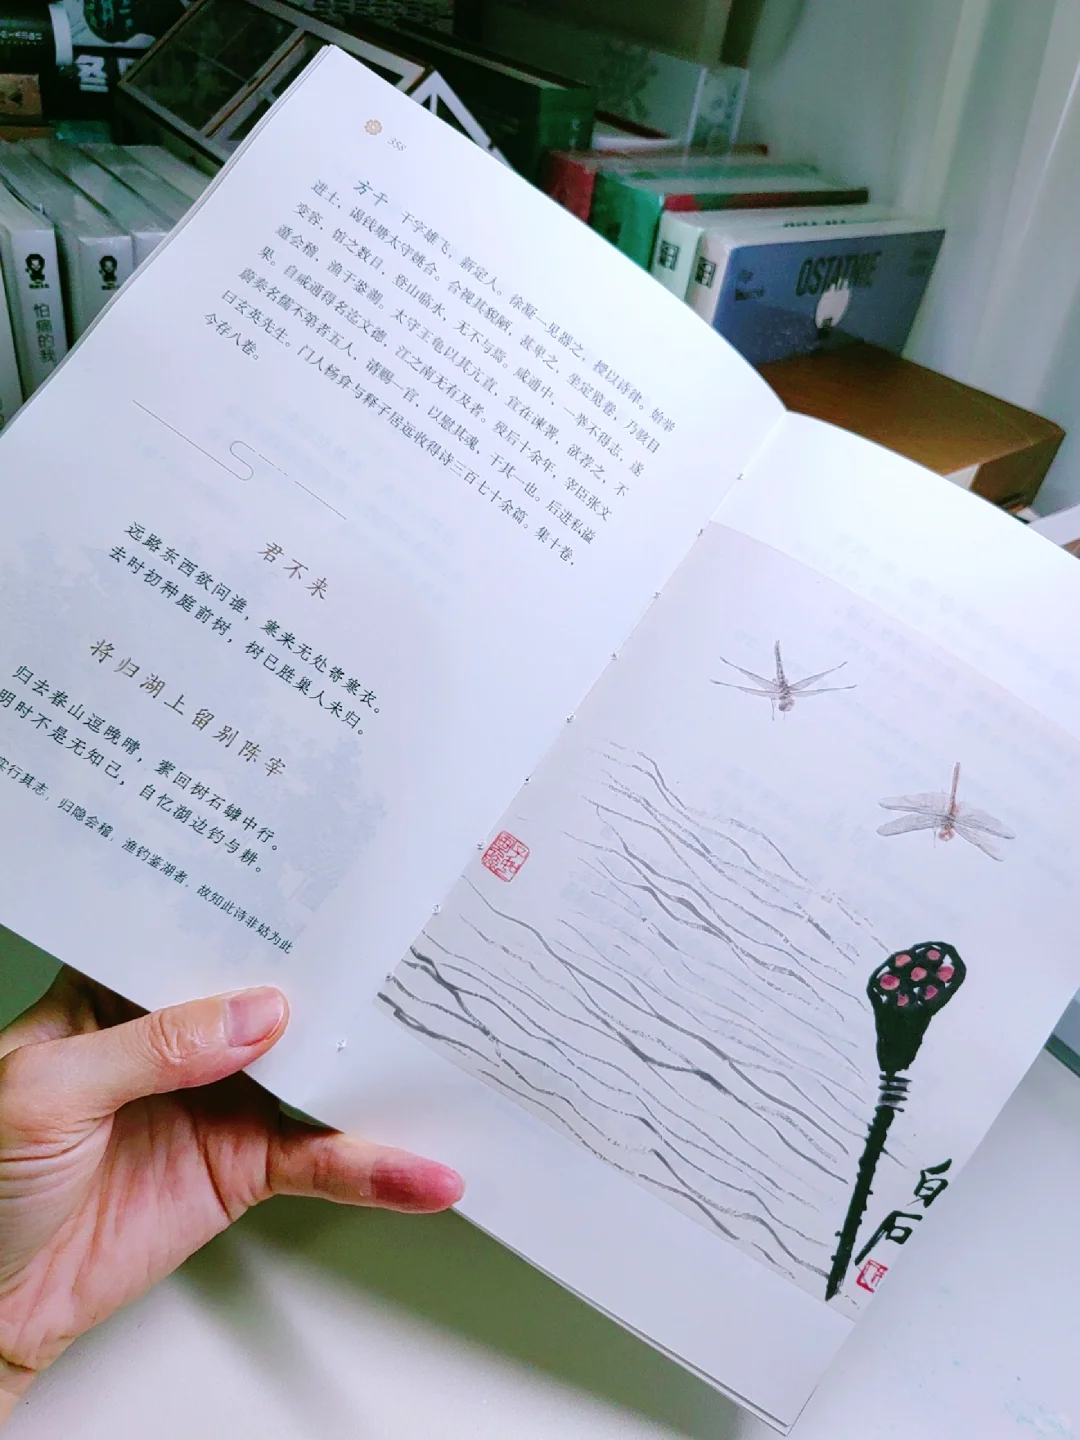 358
方干 干字雄飞，新定人。徐凝一见器之，授以诗律。始举
进士，谒钱塘太守姚合。合视其貌陋，甚卑之，坐定览卷，乃骇目
变容，馆之数日，登山临水，无不与焉。咸通中，一举不得志，遂
遁会稽，渔于鉴湖。太守王龟以其亢直，宜在谏署，欲荐之，不
果。自咸通得名迄文德，江之南无有及者。殁后十余年，宰臣张文
蔚奏名儒不第者五人，请赐一官，以慰其魂，干其一也。后进私谥
曰玄英先生。门人杨弇与释子居远收得诗三百七十余篇。集十卷，
今存八卷。
君不来
远路东西欲问谁，寒来无处寄寒衣。
去时初种庭前树，树已胜巢人未归。
将归湖上留别陈宰
归去春山逗晚晴，萦回树石罅中行。
明时不是无知己，自忆湖边钓与耕。
实行其志，归隐会稽，渔钓鉴湖者，故知此诗非姑为此
白石
怕痛的我
OSTATNIE